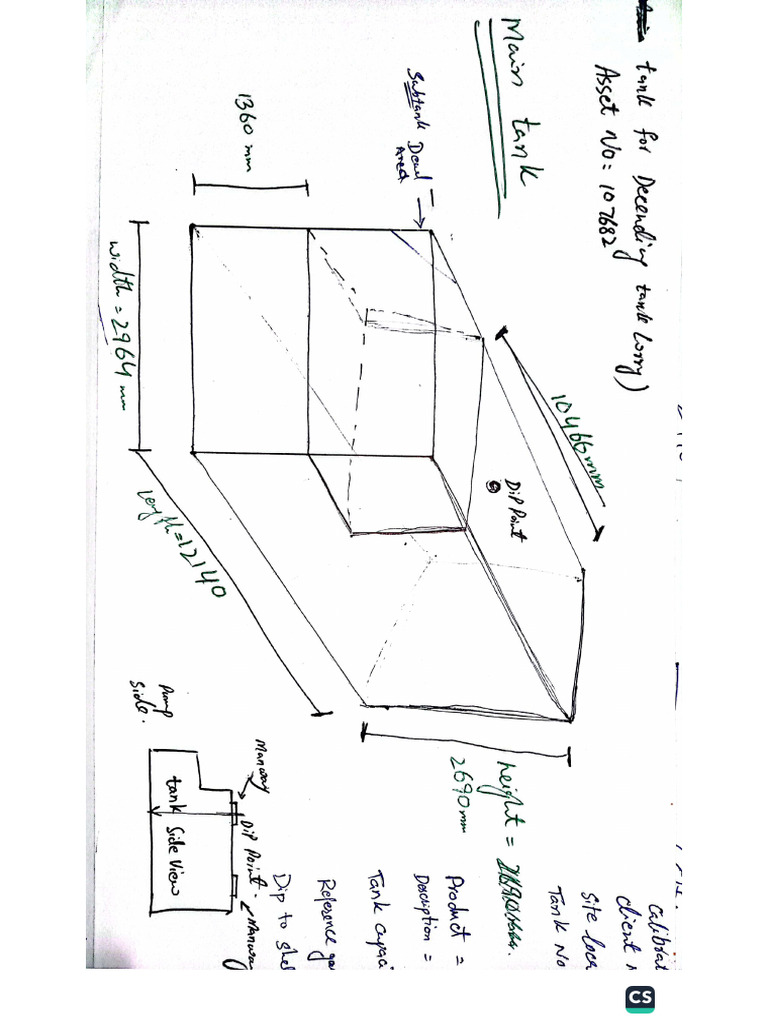 tank for Decending tank lorry)
Asset No: 107682
Main tank
Subtank Deal
Area
1360 mm
width = 2964 mm
length = 12140
10466mm
Dip Point
height =
2690mm
Calibrat
client n
Site loca
Tank No
Product =
Description =
Tank capaci
Reference ga
Dip to she
Pump
Side.
Manway
Dip Point.
Manway
tank
Side View
CS